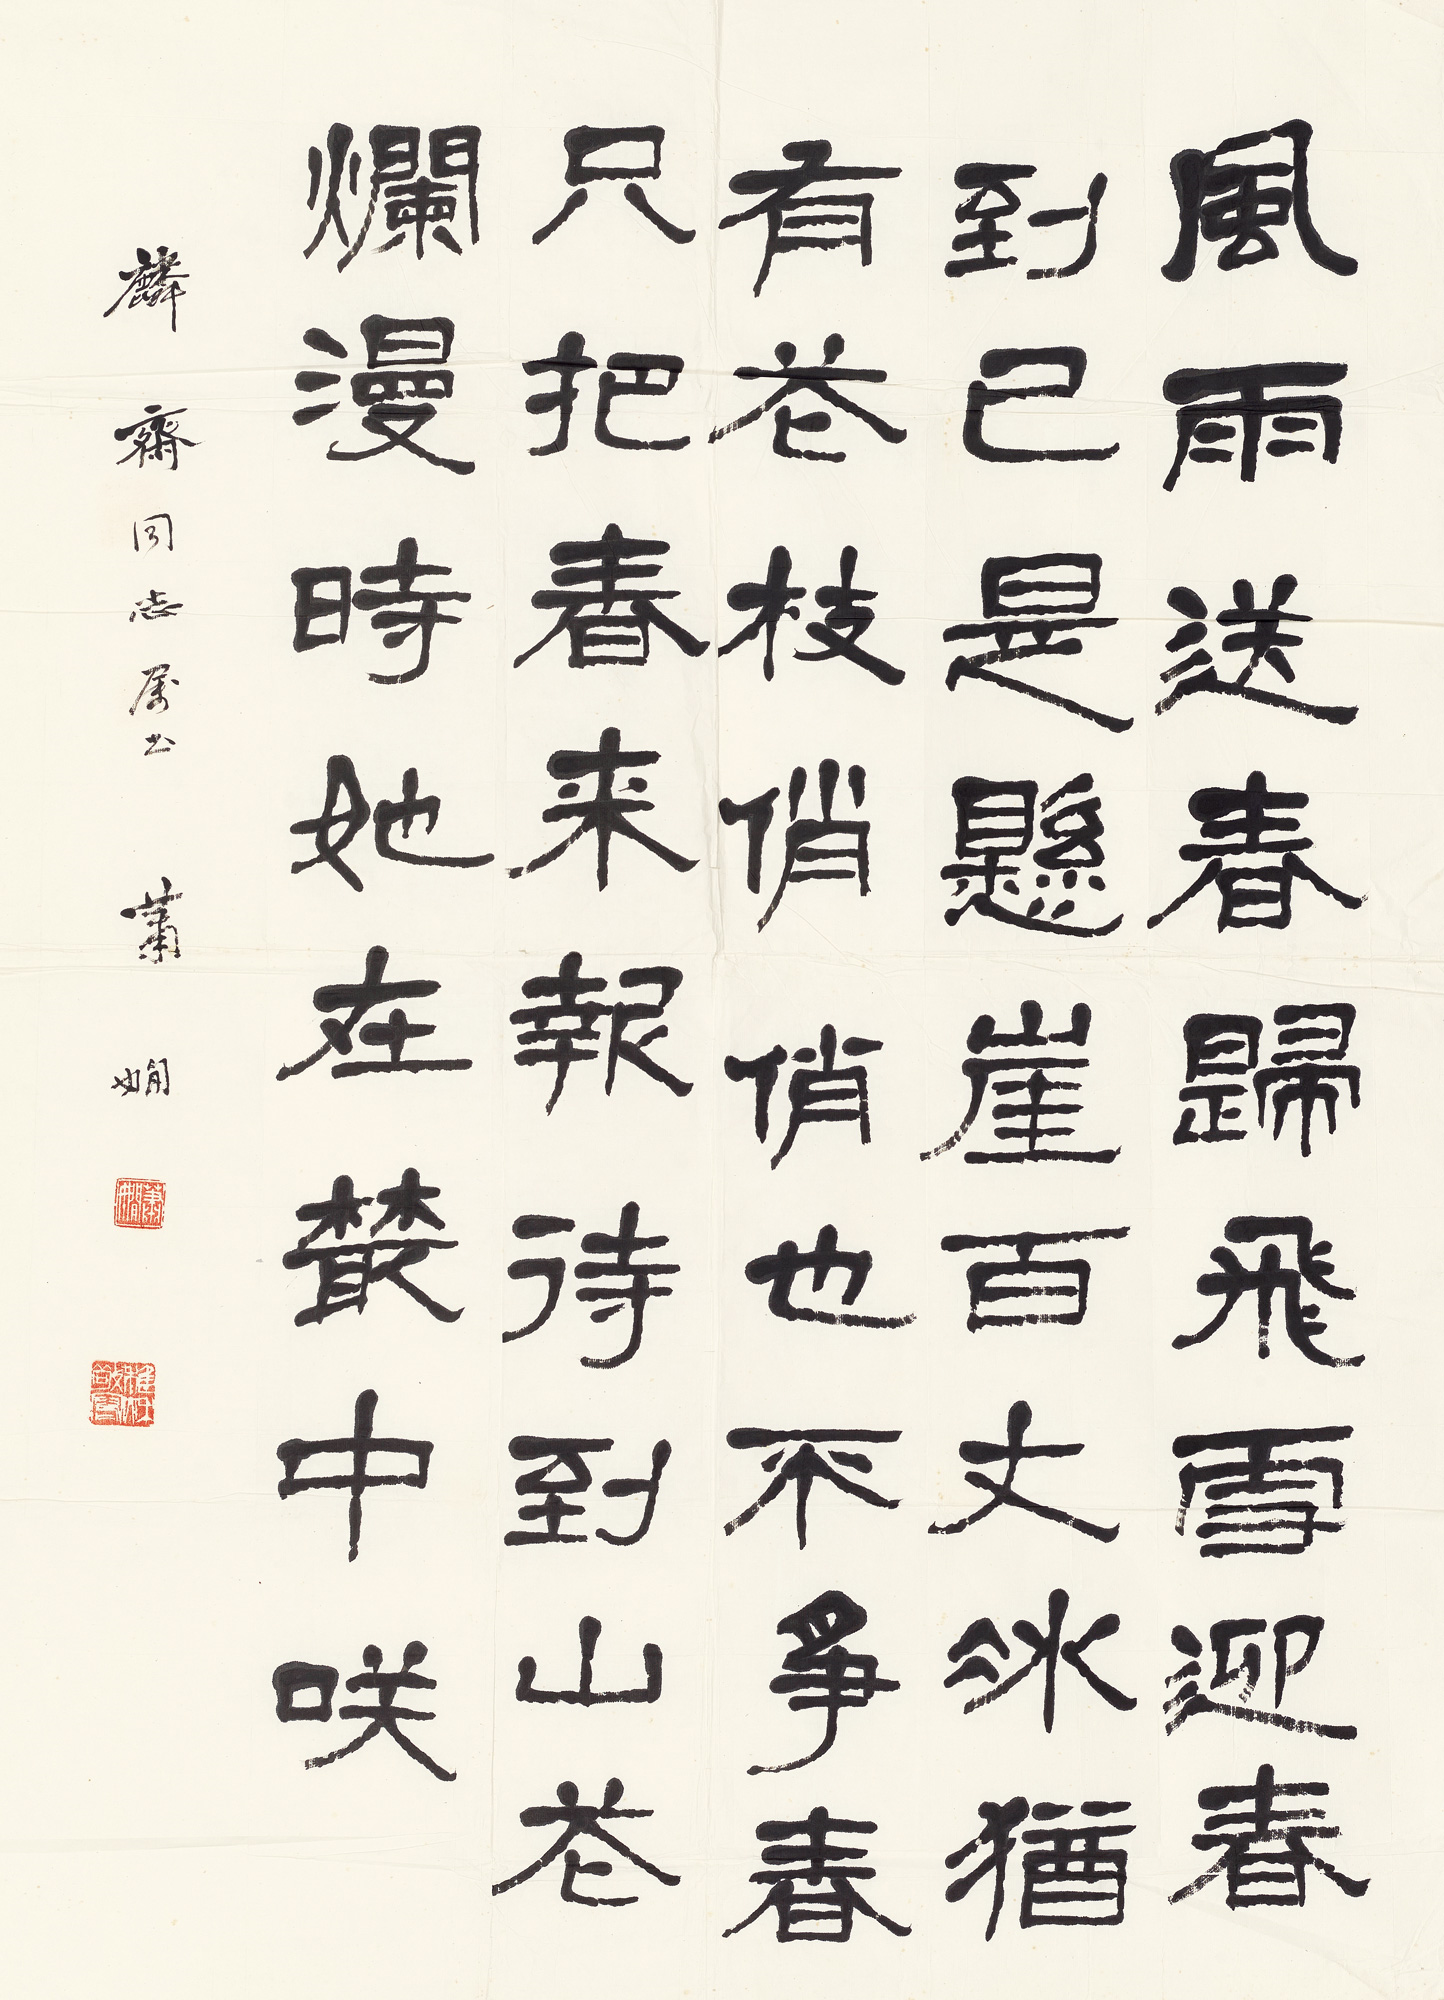 風雨送春歸飛雪迎春
到已是懸崖百丈冰猶
有花枝俏俏也不爭春
只把春来報待到山花
爛漫時她在叢中咲
麟齋同志属书 蕭嫻
蕭嫻